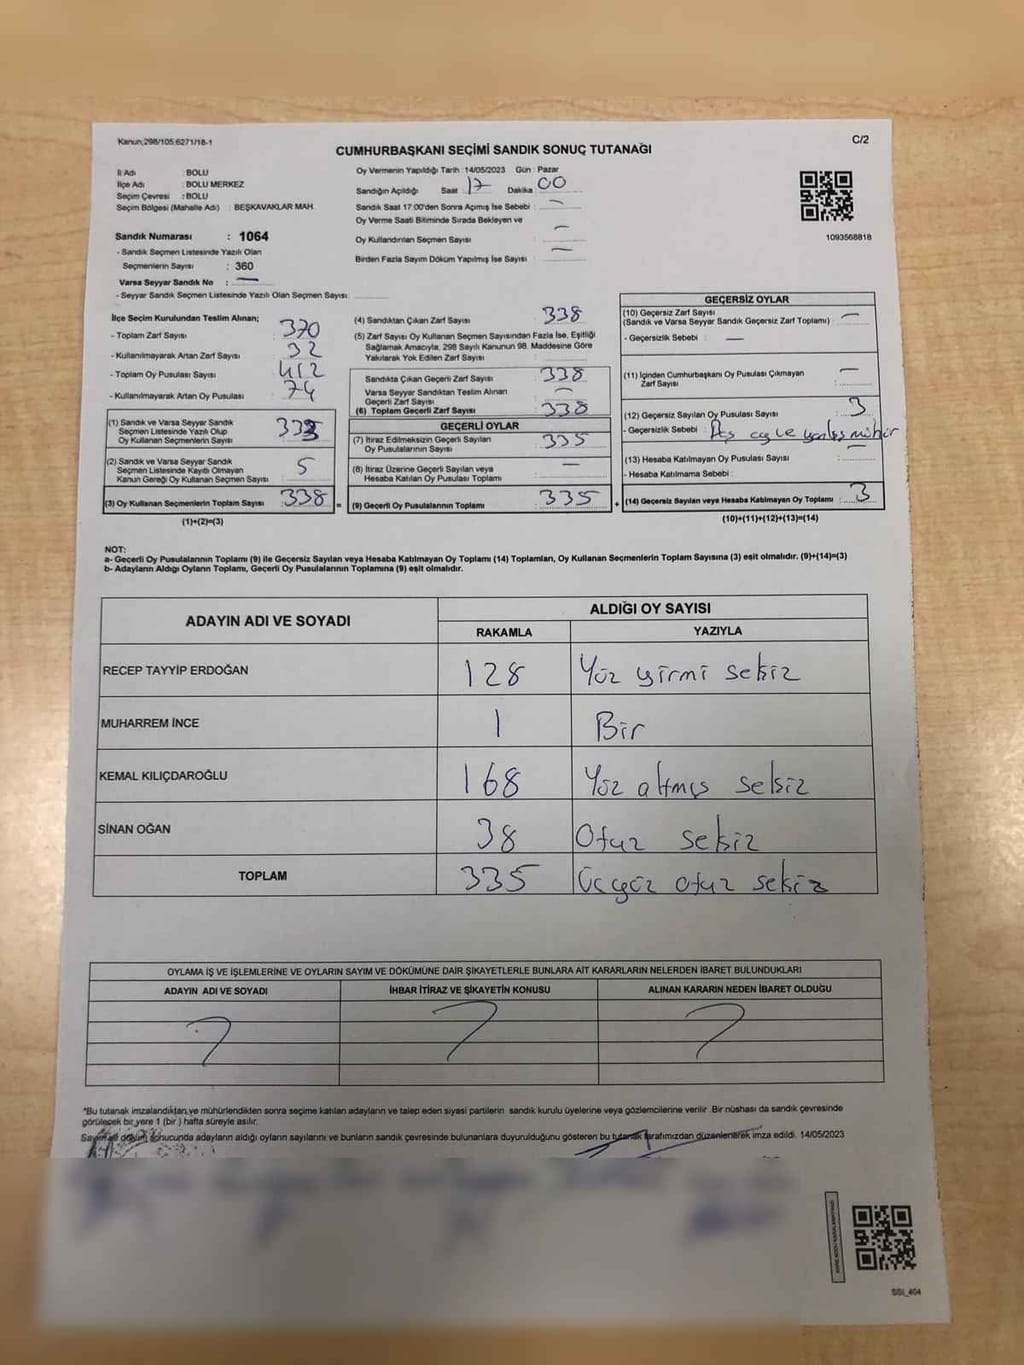 Kanun;298/105.6271/18-1
C/2
CUMHURBAŞKANI SEÇİMİ SANDIK SONUÇ TUTANAĞI
İl Adı : BOLU
İlçe Adı : BOLU MERKEZ
Seçim Çevresi : BOLU
Seçim Bölgesi (Mahalle Adı) : BEŞKAVAKLAR MAH.
Sandık Numarası : 1064
- Sandık Seçmen Listesinde Yazılı Olan
Seçmenlerin Sayısı : 360
Varsa Seyyar Sandık No : —
- Seyyar Sandık Seçmen Listesinde Yazılı Olan Seçmen Sayısı:
Oy Vermenin Yapıldığı Tarih : 14/05/2023 Gün : Pazar
Sandığın Açıldığı Saat 17 Dakika 00
Sandık Saat 17:00'den Sonra Açımış İse Sebebi : —
Oy Verme Saati Bitiminde Sırada Bekleyen ve
Oy Kullandırılan Seçmen Sayısı : —
Birden Fazla Sayım Döküm Yapılmış İse Sayısı : —
1093568818
İlçe Seçim Kurulundan Teslim Alınan;
- Toplam Zarf Sayısı : 370
- Kullanılmayarak Artan Zarf Sayısı : 32
- Toplam Oy Pusulası Sayısı : 412
- Kullanılmayarak Artan Oy Pusulası : 74
(1) Sandık ve Varsa Seyyar Sandık
Seçmen Listesinde Yazılı Olup
Oy Kullanan Seçmenlerin Sayısı : 333
(2) Sandık ve Varsa Seyyar Sandık
Seçmen Listesinde Kayıtlı Olmayan
Kanun Gereği Oy Kullanan Seçmen Sayısı : 5
(3) Oy Kullanan Seçmenlerin Toplam Sayısı : 338 =
(1)+(2)=(3)
(4) Sandıktan Çıkan Zarf Sayısı : 338
(5) Zarf Sayısı Oy Kullanan Seçmen Sayısından Fazla İse, Eşitliği
Sağlamak Amacıyla, 298 Sayılı Kanunun 98. Maddesine Göre
Yakılarak Yok Edilen Zarf Sayısı :
Sandıkta Çıkan Geçerli Zarf Sayısı : 338
Varsa Seyyar Sandıktan Teslim Alınan
Geçerli Zarf Sayısı : —
(6) Toplam Geçerli Zarf Sayısı : 338
GEÇERLİ OYLAR
(7) İtiraz Edilmeksizin Geçerli Sayılan
Oy Pusulalarının Sayısı : 335
(8) İtiraz Üzerine Geçerli Sayılan veya
Hesaba Katılan Oy Pusulası Toplamı : —
(9) Geçerli Oy Pusulalarının Toplamı : 335 +
GEÇERSİZ OYLAR
(10) Geçersiz Zarf Sayısı
(Sandık ve Varsa Seyyar Sandık Geçersiz Zarf Toplamı) : —
- Geçersizlik Sebebi : —
(11) İçinden Cumhurbaşkanı Oy Pusulası Çıkmayan
Zarf Sayısı : —
(12) Geçersiz Sayılan Oy Pusulası Sayısı : 3
- Geçersizlik Sebebi : mühür
(13) Hesaba Katılmayan Oy Pusulası Sayısı : —
- Hesaba Katılmama Sebebi :
(14) Geçersiz Sayılan veya Hesaba Katılmayan Oy Toplamı : 3
(10)+(11)+(12)+(13)=(14)
NOT:
a- Geçerli Oy Pusulalarının Toplamı (9) ile Geçersiz Sayılan veya Hesaba Katılmayan Oy Toplamı (14) Toplamları, Oy Kullanan Seçmenlerin Toplam Sayısına (3) eşit olmalıdır. (9)+(14)=(3)
b- Adayların Aldığı Oyların Toplamı, Geçerli Oy Pusulalarının Toplamına (9) eşit olmalıdır.
ADAYIN ADI VE SOYADI
ALDIĞI OY SAYISI
RAKAMLA YAZIYLA
RECEP TAYYİP ERDOĞAN 128 Yüz yirmi sekiz
MUHARREM İNCE 1 Bir
KEMAL KILIÇDAROĞLU 168 Yüz altmış sekiz
SİNAN OĞAN 38 Otuz sekiz
TOPLAM 335 Üçyüz otuz sekiz
OYLAMA İŞ VE İŞLEMLERİNE VE OYLARIN SAYIM VE DÖKÜMÜNE DAİR ŞİKAYETLERLE BUNLARA AİT KARARLARIN NELERDEN İBARET BULUNDUKLARI
ADAYIN ADI VE SOYADI İHBAR İTİRAZ VE ŞİKAYETİN KONUSU ALINAN KARARIN NEDEN İBARET OLDUĞU
*Bu tutanak imzalandıktan ve mühürlendikten sonra seçime katılan adayların ve talep eden siyasi partilerin sandık kurulu üyelerine veya gözlemcilerine verilir .Bir nüshası da sandık çevresinde
görülecek bir yere 1 (bir ) hafta süreyle asılır.
Sayım ve döküm sonucunda adayların aldığı oyların sayılarını ve bunların sandık çevresinde bulunanlara duyurulduğunu gösteren bu tutanak tarafımızdan düzenlenerek imza edildi. 14/05/2023
SSI_404